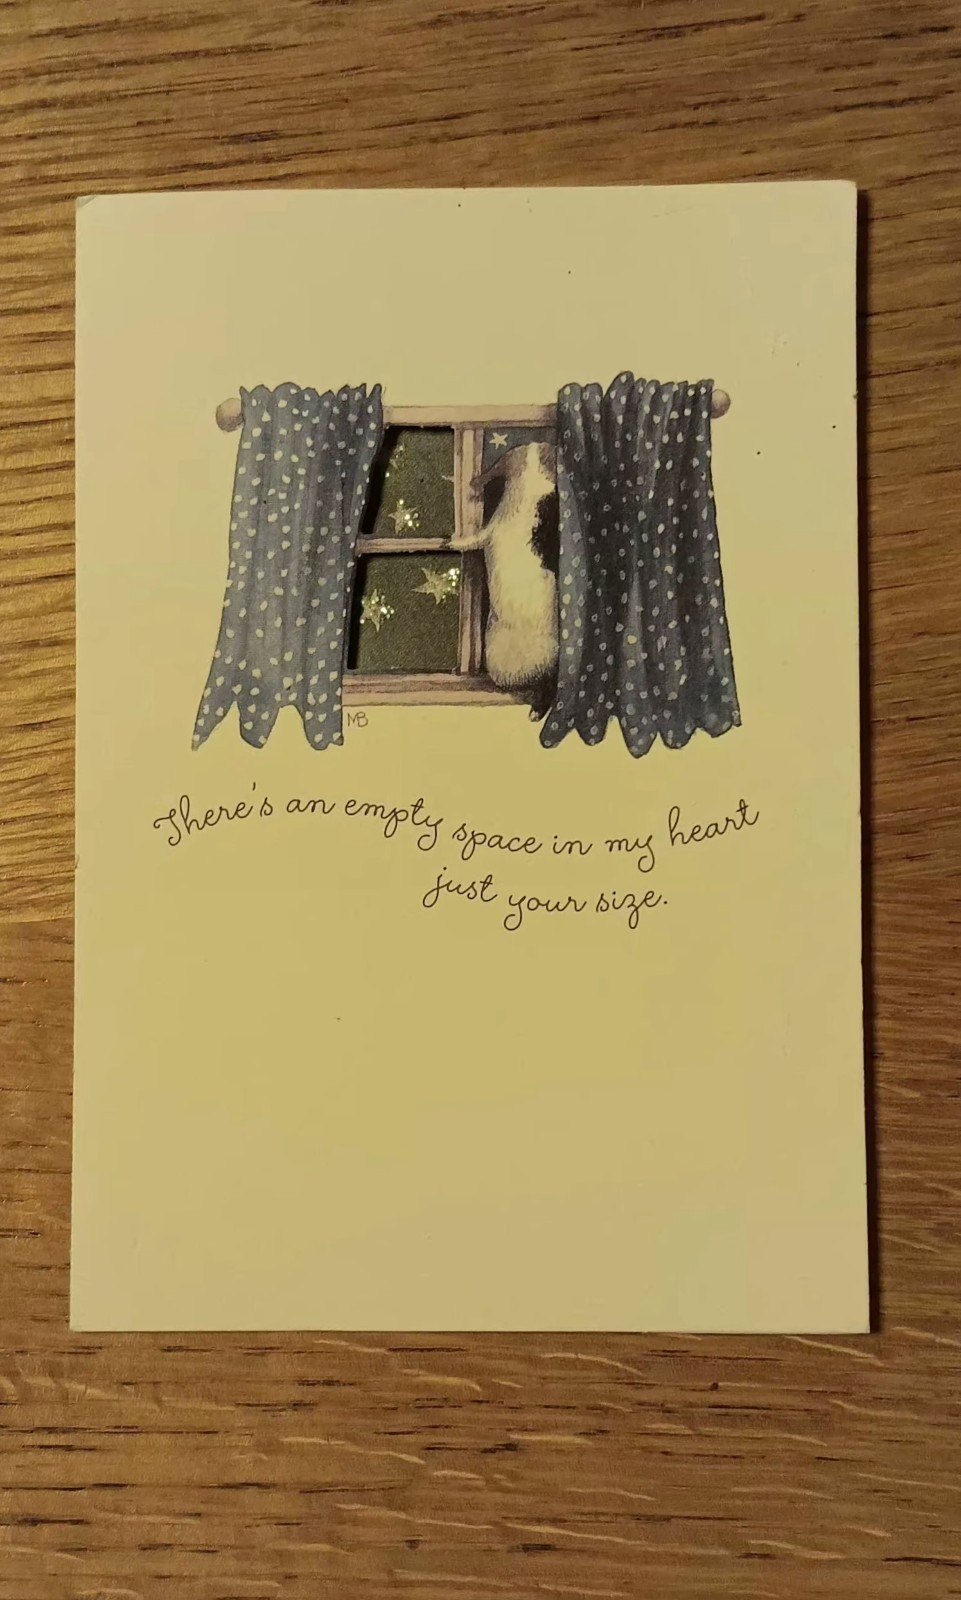 MB
There's an empty space in my heart
just your size.